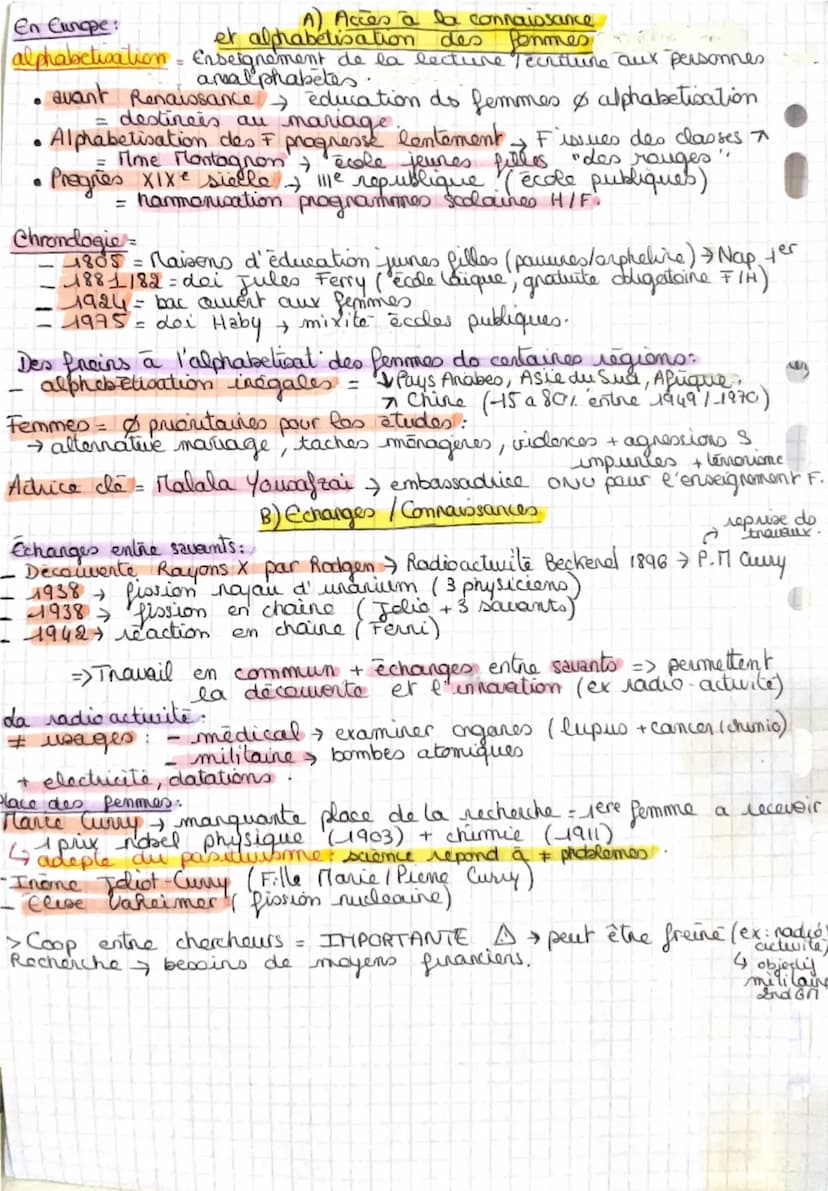 En Europe:
A) Accès à la connaissance
et alphabétisation des femmes
alphabétisation = Enseignement de la lecture/écriture aux personnes
analphabètes.
• avant Renaissance → éducation ds femmes ∅ alphabétisation
= destinées au mariage.
• Alphabétisation des F progresse lentement → F issues des classes ↗
= Mme Montagnon → école jeunes filles "des rouges".
• Progrès XIXe siècle → IIIe republique (école publiques)
= harmonisation programmes scolaires H/F.
Chronologie =
- 1805 = Maisons d'éducation jeunes filles (pauvres/orpheline) → Nap 1er
- 1881/82 = loi Jules Ferry (école laïque, gratuite obligatoire F/H)
- 1924 = bac ouvert aux femmes
- 1975 = loi Haby → mixité écoles publiques.
Des freins à l'alphabétisat° des femmes ds certaines régions:
- alphabétisation inégales = ↓ Pays Arabes, Asie du Sud, Afrique.
↗ Chine (-15 à 80% entre 1949/-1970)
Femmes = ∅ prioritaires pour les études:
→ alternative mariage, taches ménagères, violences + agressions S
impunies + terrorisme
Actrice clé = Malala Yousafzai → embassadrice ONU pour l'enseignement F.
B) Echanges / Connaissances
Échanges entre savants:
reprise ds
travaux.
- Découverte Rayons X par Rodgen → Radioactivité Beckerel 1896 → P.M Curry
- 1938 → fission noyau d'uranium (3 physiciens)
- 1938 → fission en chaine (Jolio + 3 savants)
- 1942 → réaction en chaine (Ferni)
=> Travail en commun + échanges entre savants => permettent
la découverte et l'innovation (ex radio-activité)
la radioactivité:
≠ usages: - médical → examiner organes (lupus + cancer (chimio)
- militaire → bombes atomiques
+ électricité, datations.
Place des femmes:
Marie Curry → marquante place de la recherche = 1ere femme a recevoir
1 prix nobel physique (1903) + chimie (1911)
↳ adepte du positivisme: science répond à ≠ problèmes.
- Irène Joliot-Curry (Fille Marie/Pierre Curry)
- Elise Vaheimer (fission nucléaire)
> Coop entre chercheurs = IMPORTANTE ⚠ → peut être freiné (ex: radio
activité)
Recherche → besoins de moyens financiers.
↳ objectif
militaire
2nd GM